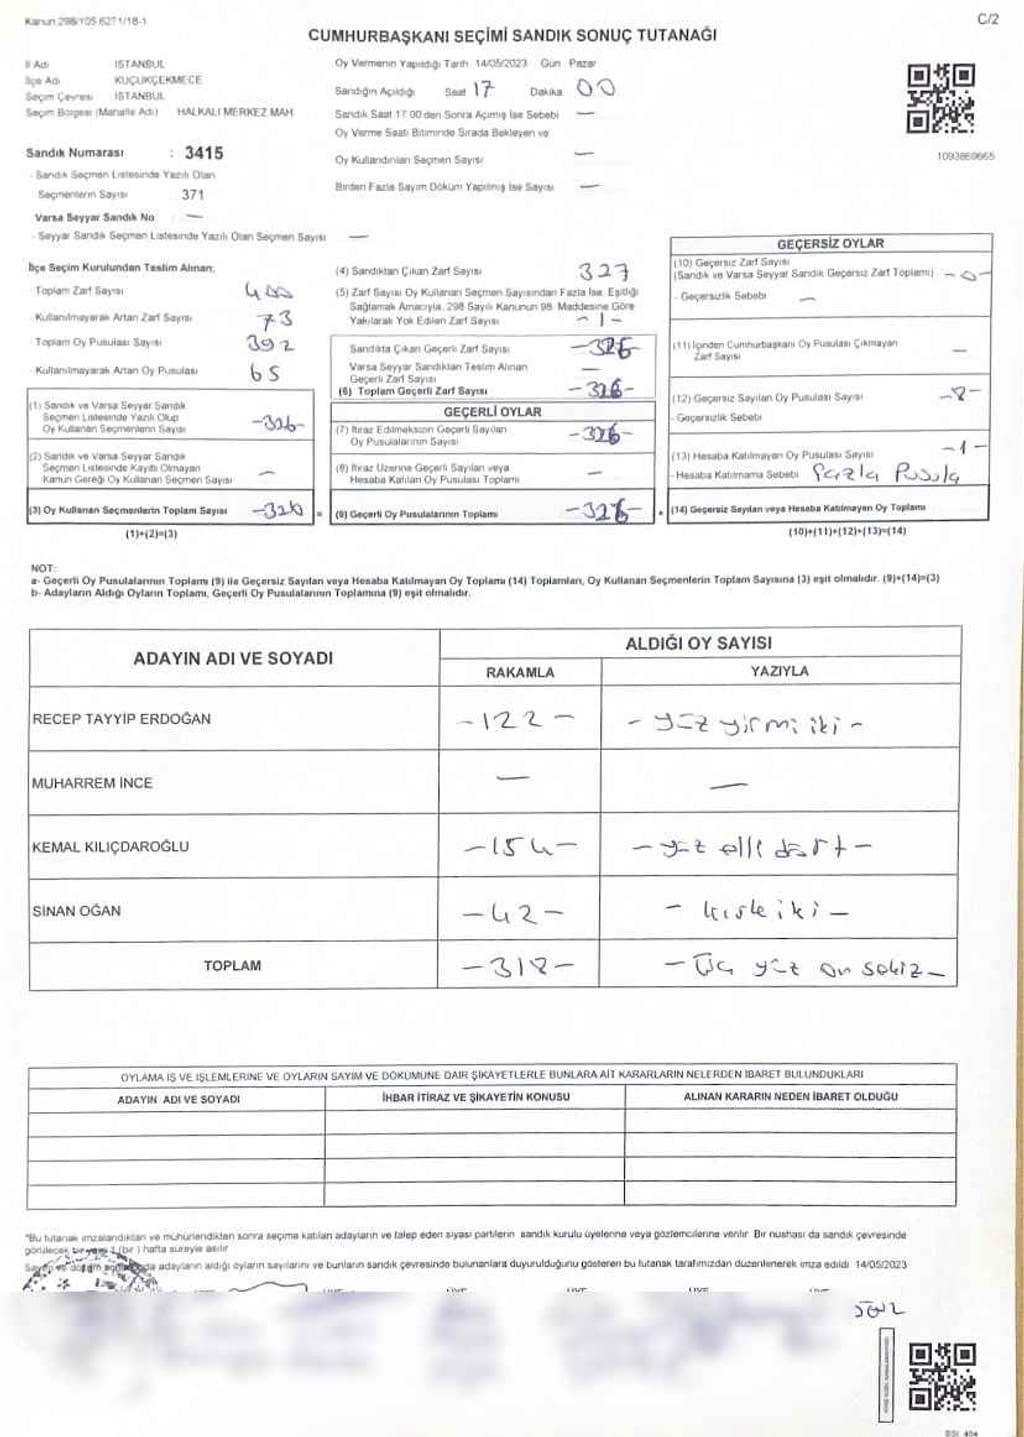 Kanun 298/105 6271/18-1
C/2
CUMHURBAŞKANI SEÇİMİ SANDIK SONUÇ TUTANAĞI
İl Adı İSTANBUL
İlçe Adı KÜÇÜKÇEKMECE
Seçim Çevresi İSTANBUL
Seçim Bölgesi (Mahalle Adı) HALKALI MERKEZ MAH.
Sandık Numarası : 3415
- Sandık Seçmen Listesinde Yazılı Olan
Seçmenlerin Sayısı 371
Varsa Seyyar Sandık No —
- Seyyar Sandık Seçmen Listesinde Yazılı Olan Seçmen Sayısı —
Oy Vermenin Yapıldığı Tarih 14/05/2023 Gün Pazar
Sandığın Açıldığı Saat 17 Dakika 00
Sandık Saat 17:00'den Sonra Açımış İse Sebebi —
Oy Verme Saati Bitiminde Sırada Bekleyen ve
Oy Kullandırılan Seçmen Sayısı —
Birden Fazla Sayım Döküm Yapılmış İse Sayısı —
1093869665
İlçe Seçim Kurulundan Teslim Alınan;
Toplam Zarf Sayısı 400
- Kullanılmayarak Artan Zarf Sayısı 73
- Toplam Oy Pusulası Sayısı 392
- Kullanılmayarak Artan Oy Pusulası 65
(1) Sandık ve Varsa Seyyar Sandık
Seçmen Listesinde Yazılı Olup
Oy Kullanan Seçmenlerin Sayısı -326-
(2) Sandık ve Varsa Seyyar Sandık
Seçmen Listesinde Kayıtlı Olmayan
Kanun Gereği Oy Kullanan Seçmen Sayısı —
(3) Oy Kullanan Seçmenlerin Toplam Sayısı -326-
(1)+(2)=(3)
(4) Sandıktan Çıkan Zarf Sayısı 327
(5) Zarf Sayısı Oy Kullanan Seçmen Sayısından Fazla İse, Eşitliği
Sağlamak Amacıyla, 298 Sayılı Kanunun 98. Maddesine Göre
Yakılarak Yok Edilen Zarf Sayısı -1-
Sandıkta Çıkan Geçerli Zarf Sayısı -326-
Varsa Seyyar Sandıktan Teslim Alınan
Geçerli Zarf Sayısı —
(6) Toplam Geçerli Zarf Sayısı -326-
GEÇERLİ OYLAR
(7) İtiraz Edilmeksizin Geçerli Sayılan
Oy Pusulalarının Sayısı -326-
(8) İtiraz Üzerine Geçerli Sayılan veya
Hesaba Katılan Oy Pusulası Toplamı —
= (9) Geçerli Oy Pusulalarının Toplamı -326-
GEÇERSİZ OYLAR
(10) Geçersiz Zarf Sayısı
(Sandık ve Varsa Seyyar Sandık Geçersiz Zarf Toplamı) -0-
- Geçersizlik Sebebi —
(11) İçinden Cumhurbaşkanı Oy Pusulası Çıkmayan
Zarf Sayısı —
(12) Geçersiz Sayılan Oy Pusulası Sayısı -8-
- Geçersizlik Sebebi
(13) Hesaba Katılmayan Oy Pusulası Sayısı -1-
- Hesaba Katılmama Sebebi fazla Pusula
+ (14) Geçersiz Sayılan veya Hesaba Katılmayan Oy Toplamı
(10)+(11)+(12)+(13)=(14)
NOT:
a- Geçerli Oy Pusulalarının Toplamı (9) ile Geçersiz Sayılan veya Hesaba Katılmayan Oy Toplamı (14) Toplamları, Oy Kullanan Seçmenlerin Toplam Sayısına (3) eşit olmalıdır. (9)+(14)=(3)
b- Adayların Aldığı Oyların Toplamı, Geçerli Oy Pusulalarının Toplamına (9) eşit olmalıdır.
ADAYIN ADI VE SOYADI
ALDIĞI OY SAYISI
RAKAMLA YAZIYLA
RECEP TAYYİP ERDOĞAN -122- - yüz yirmi iki -
MUHARREM İNCE — —
KEMAL KILIÇDAROĞLU -154- - yüz elli dört -
SİNAN OĞAN -42- - kırk iki -
TOPLAM -318- - Üç yüz on sekiz -
OYLAMA İŞ VE İŞLEMLERİNE VE OYLARIN SAYIM VE DÖKÜMÜNE DAİR ŞİKAYETLERLE BUNLARA AİT KARARLARIN NELERDEN İBARET BULUNDUKLARI
ADAYIN ADI VE SOYADI İHBAR İTİRAZ VE ŞİKAYETİN KONUSU ALINAN KARARIN NEDEN İBARET OLDUĞU
*Bu tutanak imzalandıktan ve mühürlendikten sonra seçime katılan adayların ve talep eden siyasi partilerin sandık kurulu üyelerine veya gözlemcilerine verilir. Bir nushası da sandık çevresinde
görülecek bir yere 1 (bir) hafta süreyle asılır
Sayım ve döküm adayların aldığı oyların sayılarını ve bunların sandık çevresinde bulunanlara duyurulduğunu gösteren bu tutanak tarafımızdan düzenlenerek imza edildi. 14/05/2023